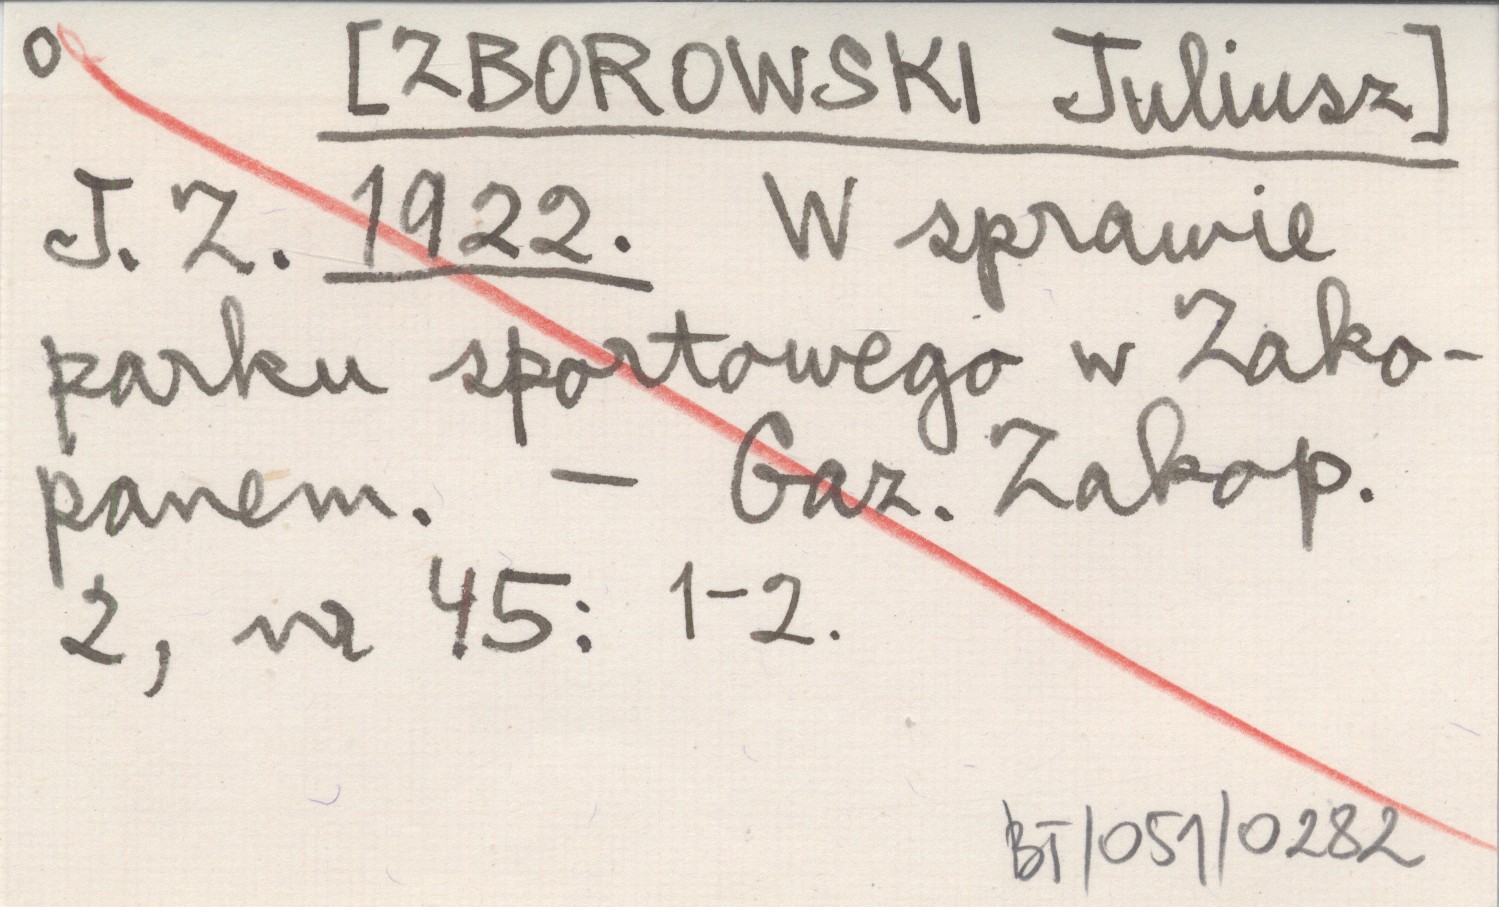 o [ZBOROWSKI Juliusz]
J. Z. 1922. W sprawie
parku sportowego w Zako-
panem. – Gaz. Zakop.
2, nr 45: 1-2.
BT/051/0282